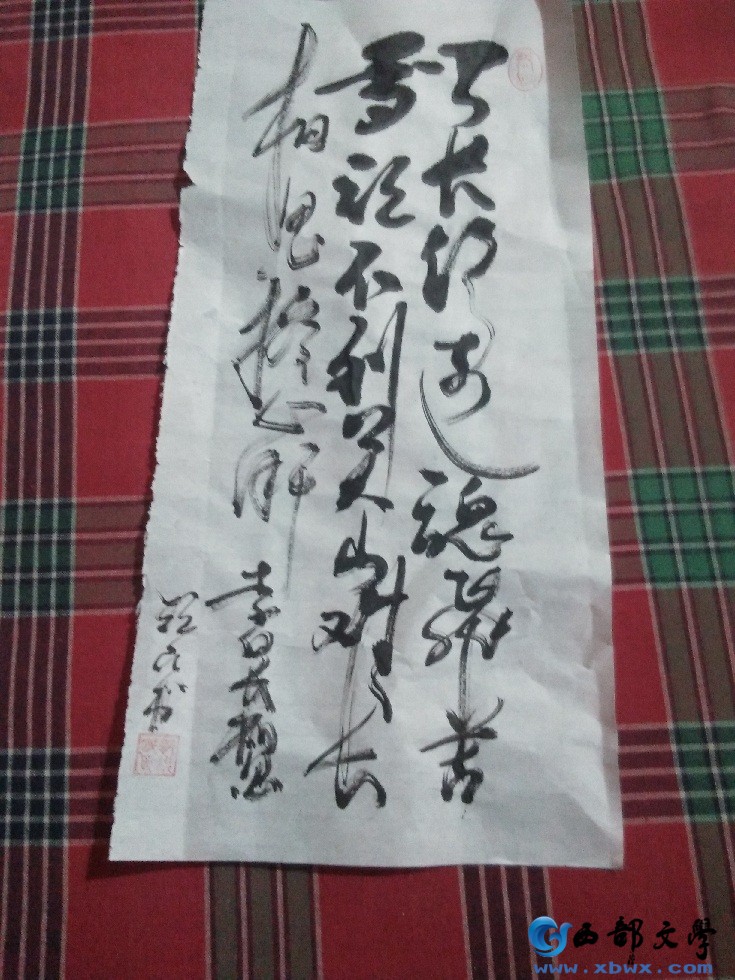 天长路远魂飞苦
梦魂不到关山难长
相思摧心肝
李白长相思
书
西部文學
www.xbwx.com